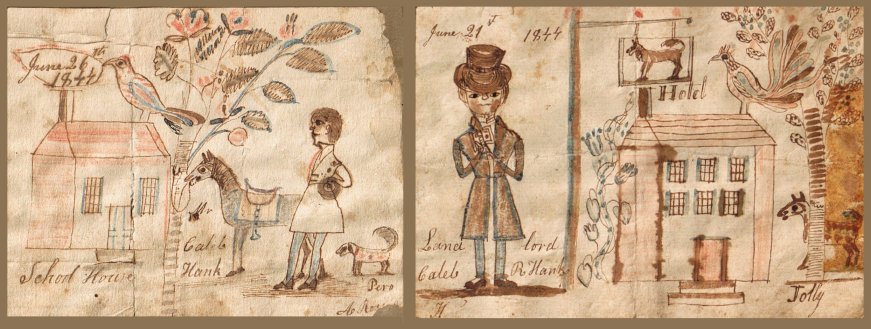 June 26th
1844
School House
Mr
Caleb
Hank
Pero
June 21st 1844
Hotel
Land lord
Caleb R Hank
H
Jolly